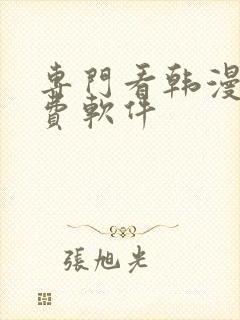 專門看韩漫
費軟件
張旭光